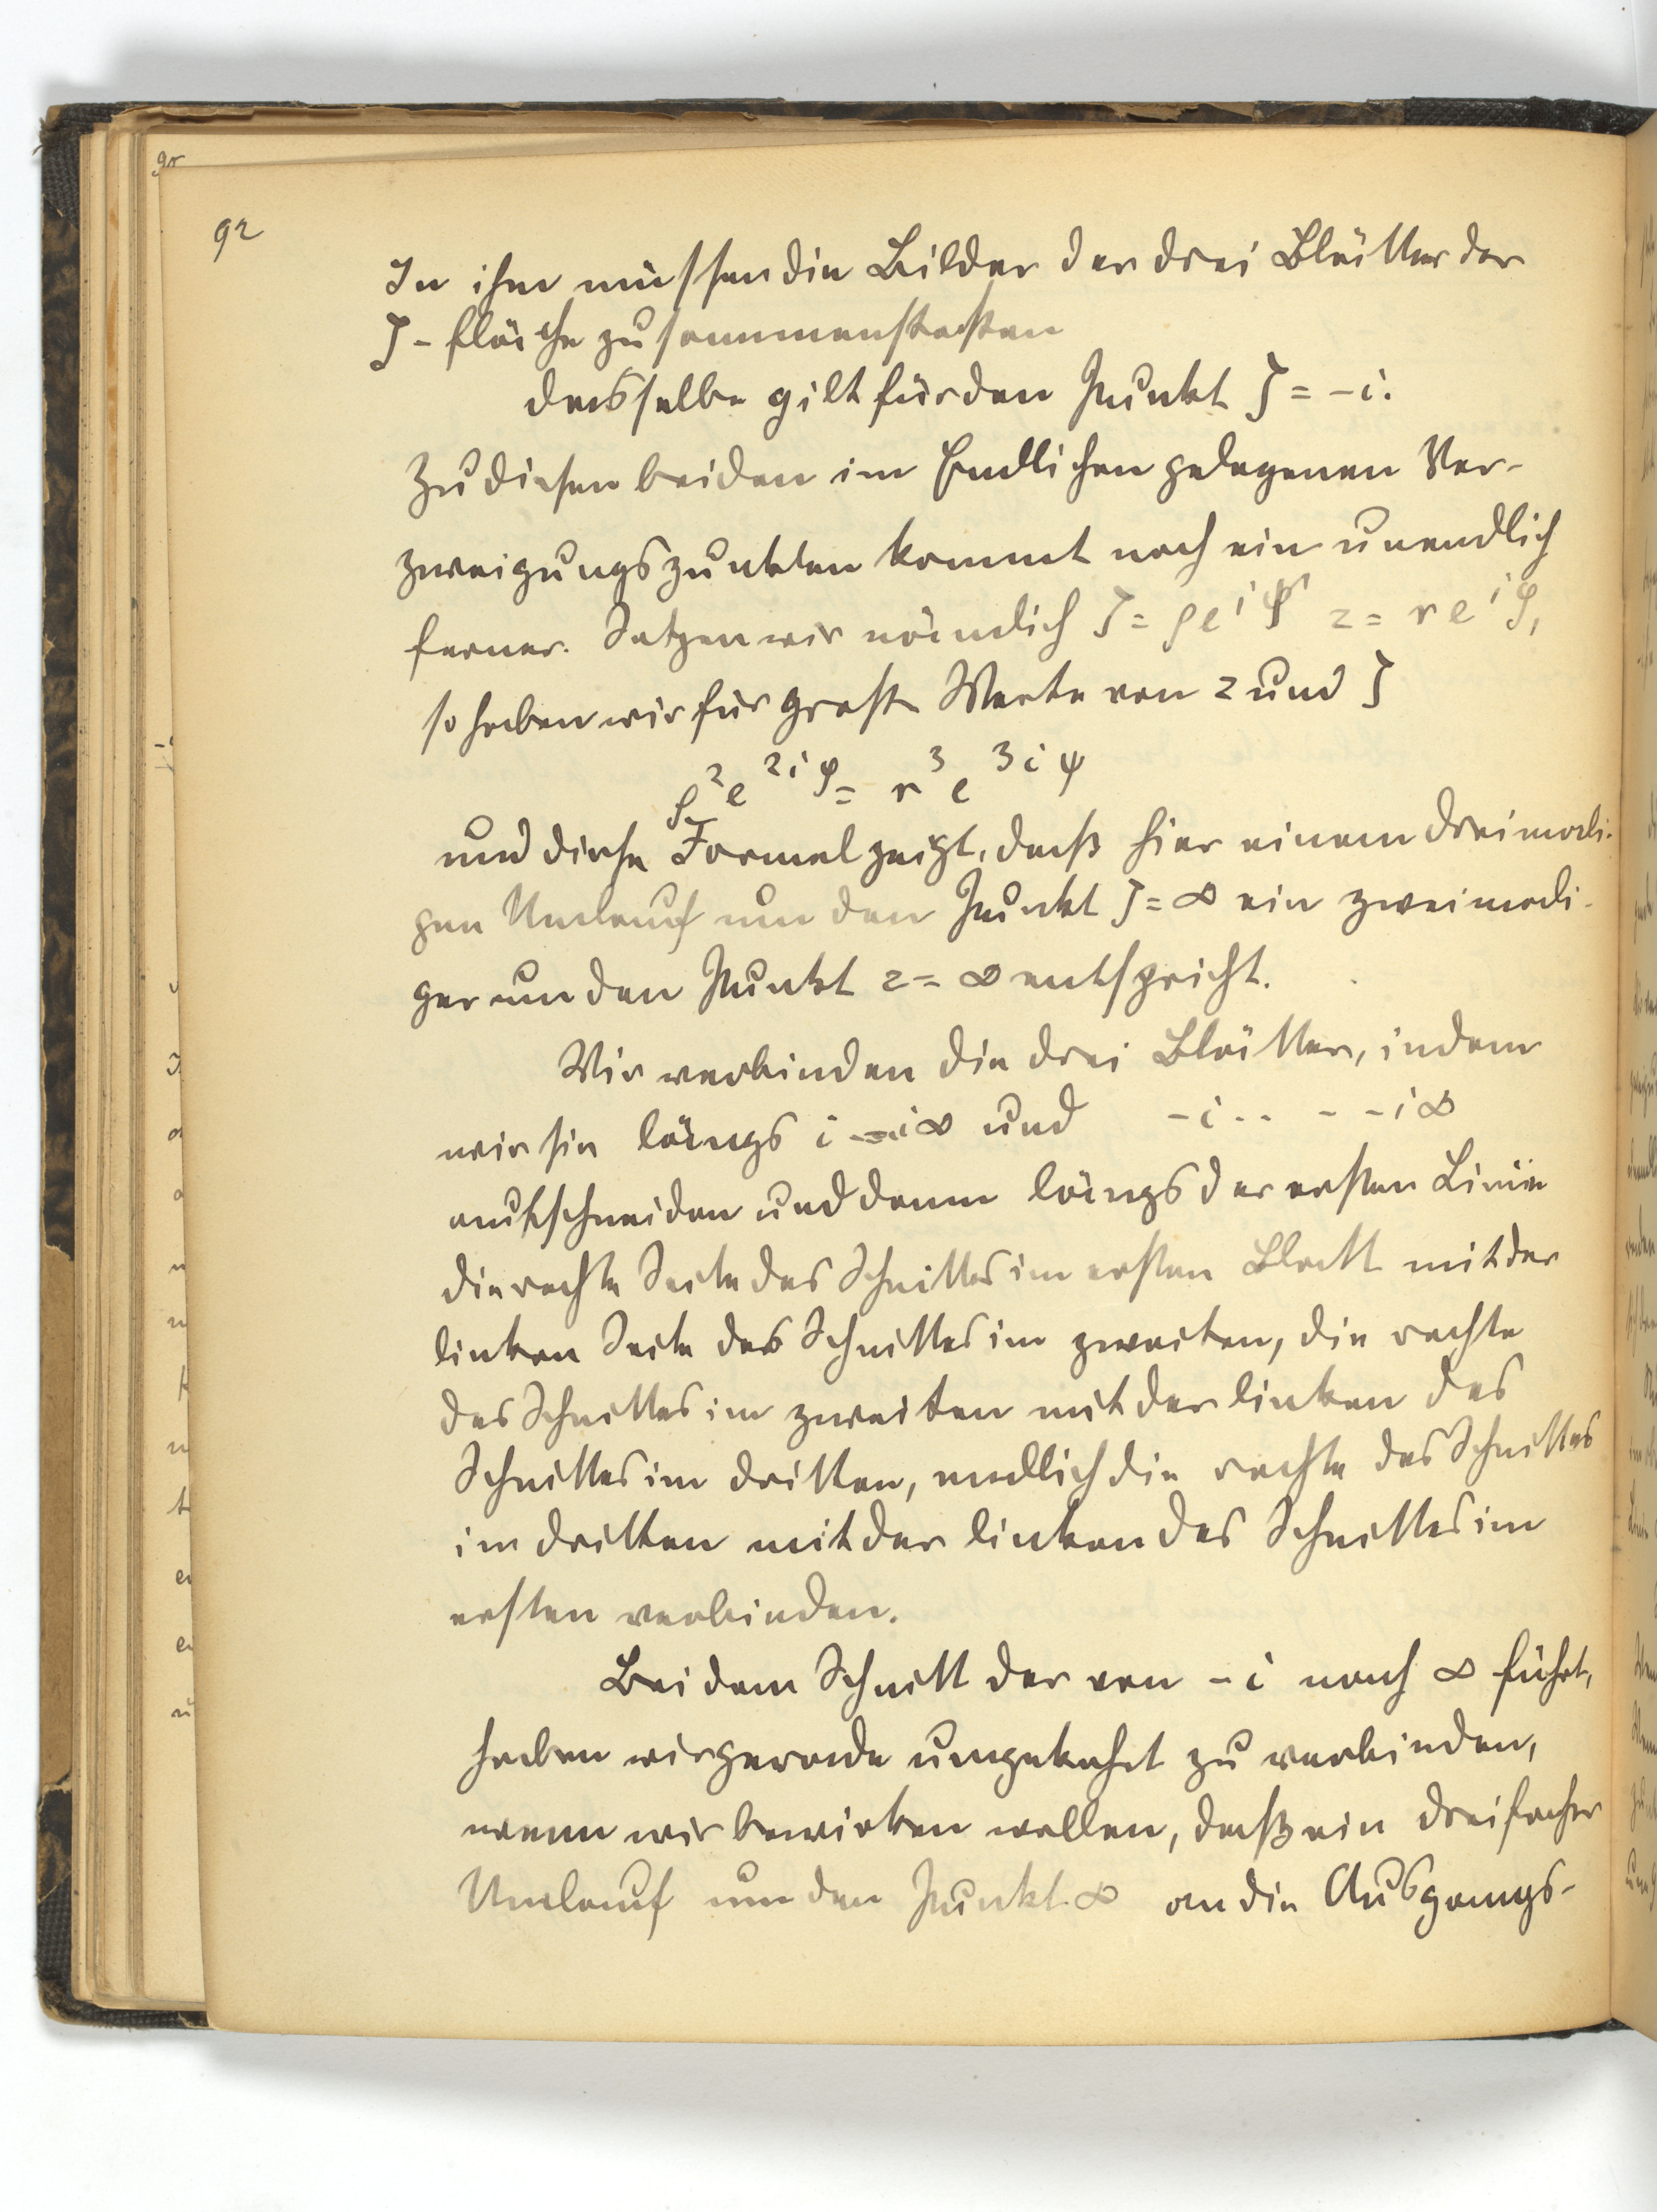 92
In ihm müssen die Bilder der drei Blätter der
ζ-fläche zusammenstossen
dasselbe gilt für den Punkt ζ = -i.
Zu diesen beiden im Endlichen gelegenen Ver-
zweigungspunkten kommt noch ein unendlich
ferner. Setzen wir nämlich ζ = ρe^{iψ} z = re^{iφ},
so haben wir für große Werte von z und ζ
ρ²e^{2iφ} = r³e^{3iψ}
und diese Formel zeigt, daß hier einem dreimali-
gen Umlauf um den Punkt ζ = ∞ ein zweimali-
ger um den Punkt z = ∞ entspricht.
Wir verbinden die drei Blätter, indem
wir sie längs i - i∞ und -i .. - -i∞
aufschneiden und dann längs der ersten Linie
die rechte Seite des Schnittes im ersten Blatt mit der
linken Seite des Schnittes im zweiten, die rechte
des Schnittes im zweiten mit der linken des
Schnittes im dritten, endlich die rechte des Schnittes
im dritten mit der linken des Schnittes im
ersten verbinden.
Bei dem Schnitt der von -i nach ∞ führt,
haben wir gerade umgekehrt zu verbinden,
wenn wir bewirken wollen, daß ein dreifacher
Umlauf um den Punkt ∞ an die Ausgangs-